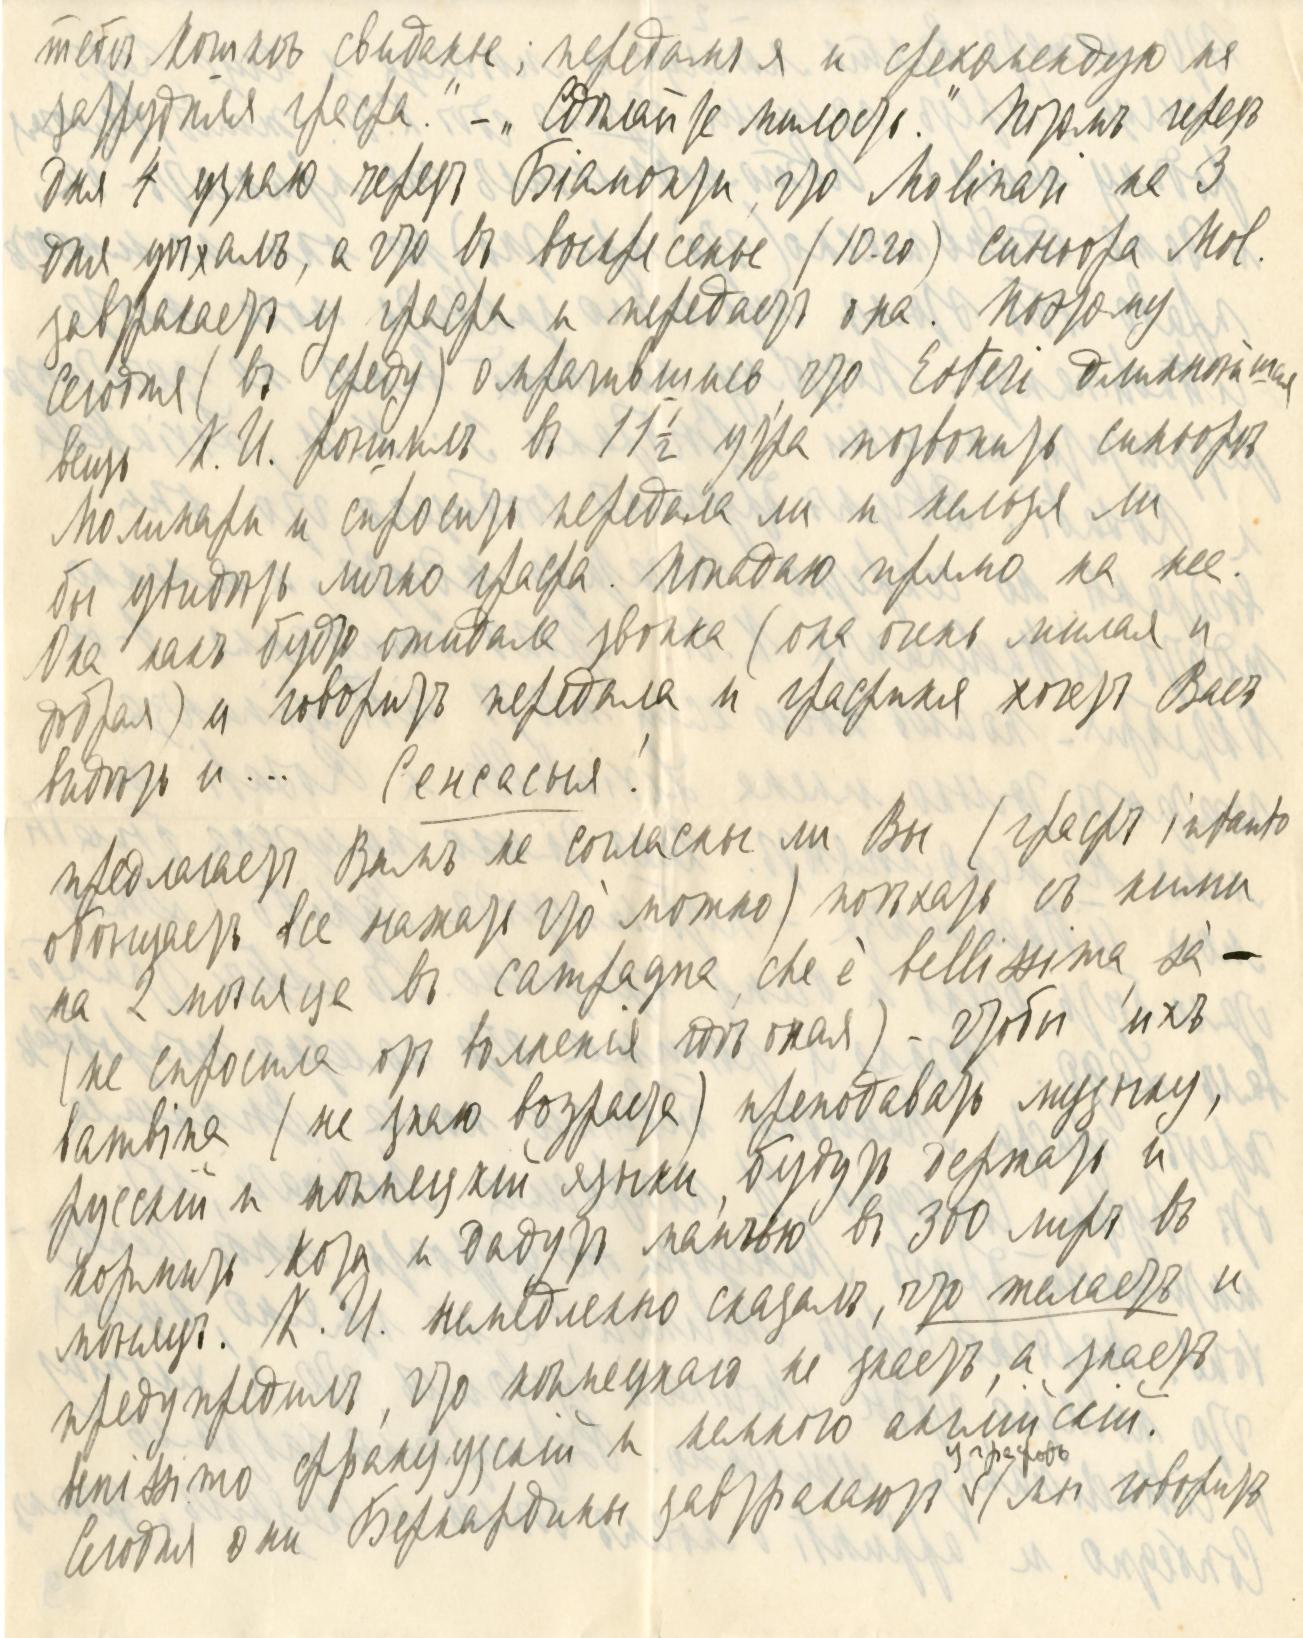 тебѣ Котикъ свиданье; передамъ я и срекомендую не
затрудняя графа." – „Сдѣлайте милость." Потомъ черезъ
дня 4 узнаю черезъ Біамонти, что Molinari на 3
дня уѣхалъ, а что въ воскресенье (10-го) синьора Mol.
завтракаетъ у графа и передастъ она. Поэтому
сегодня (въ среду) опрачившись, что Esteri длиннѣйшая
вещь К.И. рѣшилъ въ 11½ утра позвонить синьорѣ
Молинари и спросить передала ли и нельзя ли
бы увидѣть лично графа. Попадаю прямо на нее.
Она какъ будто ожидала звонка (она очень милая и
добрая) и говоритъ передала и графиня хочетъ Васъ
видѣть и... Сенсасыя!
предлагаетъ Вамъ не согласны ли Вы (графъ intanto
обѣщаетъ все нажать что можно) поѣхать съ ними
на 2 мѣсяца въ campagna, che è bellissima, sà –
(не спросила отъ волненія гдѣ оная) – чтобы ихъ
bambina (не знаю возраста) преподавать музыку,
русскій и нѣмецкій языки, будутъ держать и
кормить Кота и дадутъ манчью въ 300 лиръ въ
мѣсяцъ. К.И. немедленно сказалъ, что желаетъ и
предупредилъ, что нѣмецкаго не знаетъ, а знаетъ
benissimo французскій и немного англійскій.
Сегодня они Бернардины завтракаютъ у графовъ (мы говоритъ